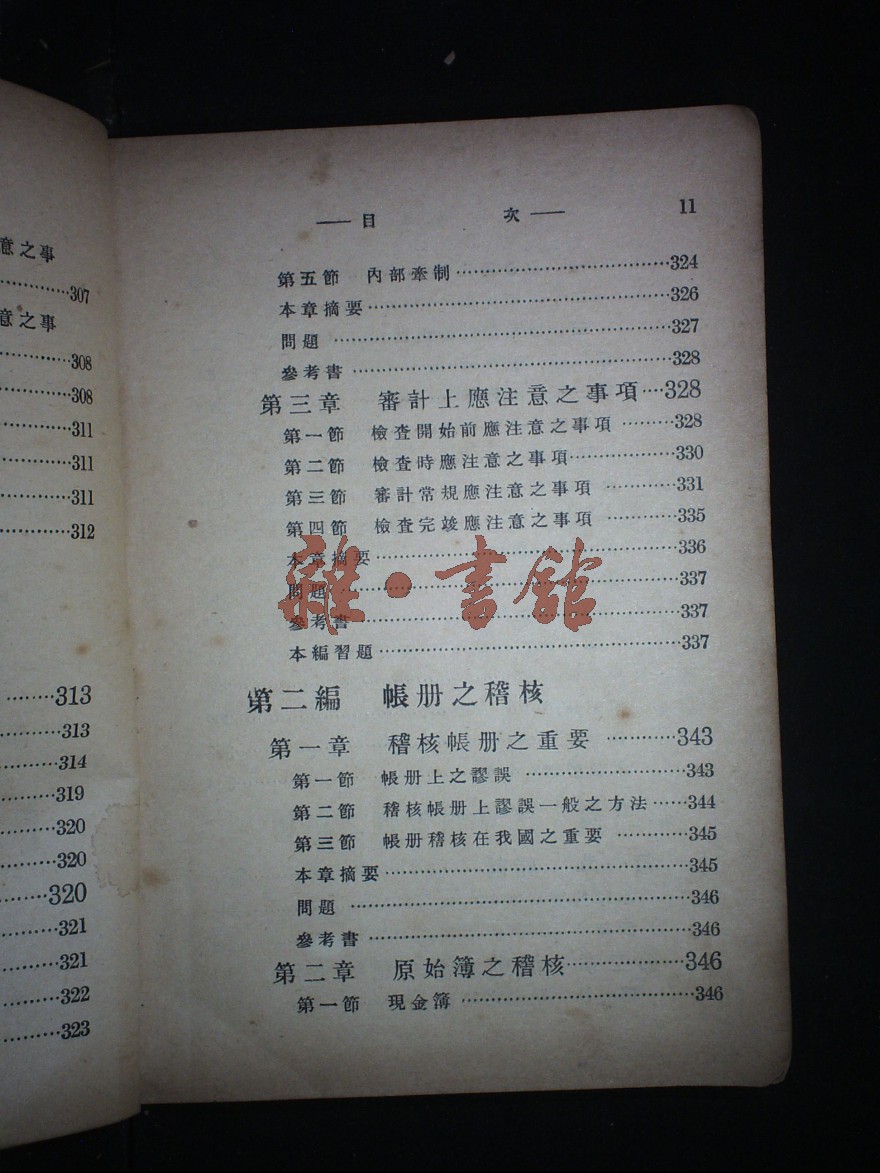 意之事
………307
意之事
………308
………308
………311
………311
………311
………312
………313
………313
………314
………319
………320
………320
………320
………321
………321
………322
………323
——目 次—— 11
第五節 內部牽制………324
本章摘要………326
問題………327
參考書………328
第三章 審計上應注意之事項…328
第一節 檢查開始前應注意之事項………328
第二節 檢查時應注意之事項………330
第三節 審計常規應注意之事項………331
第四節 檢查完竣應注意之事項………335
本章摘要………336
問題………337
參考書………337
本編習題………337
雜·書館
第二編 帳册之稽核
第一章 稽核帳册之重要………343
第一節 帳册上之謬誤………343
第二節 稽核帳册上謬誤一般之方法……344
第三節 帳册稽核在我國之重要………345
本章摘要………345
問題………346
參考書………346
第二章 原始簿之稽核………346
第一節 現金簿………346